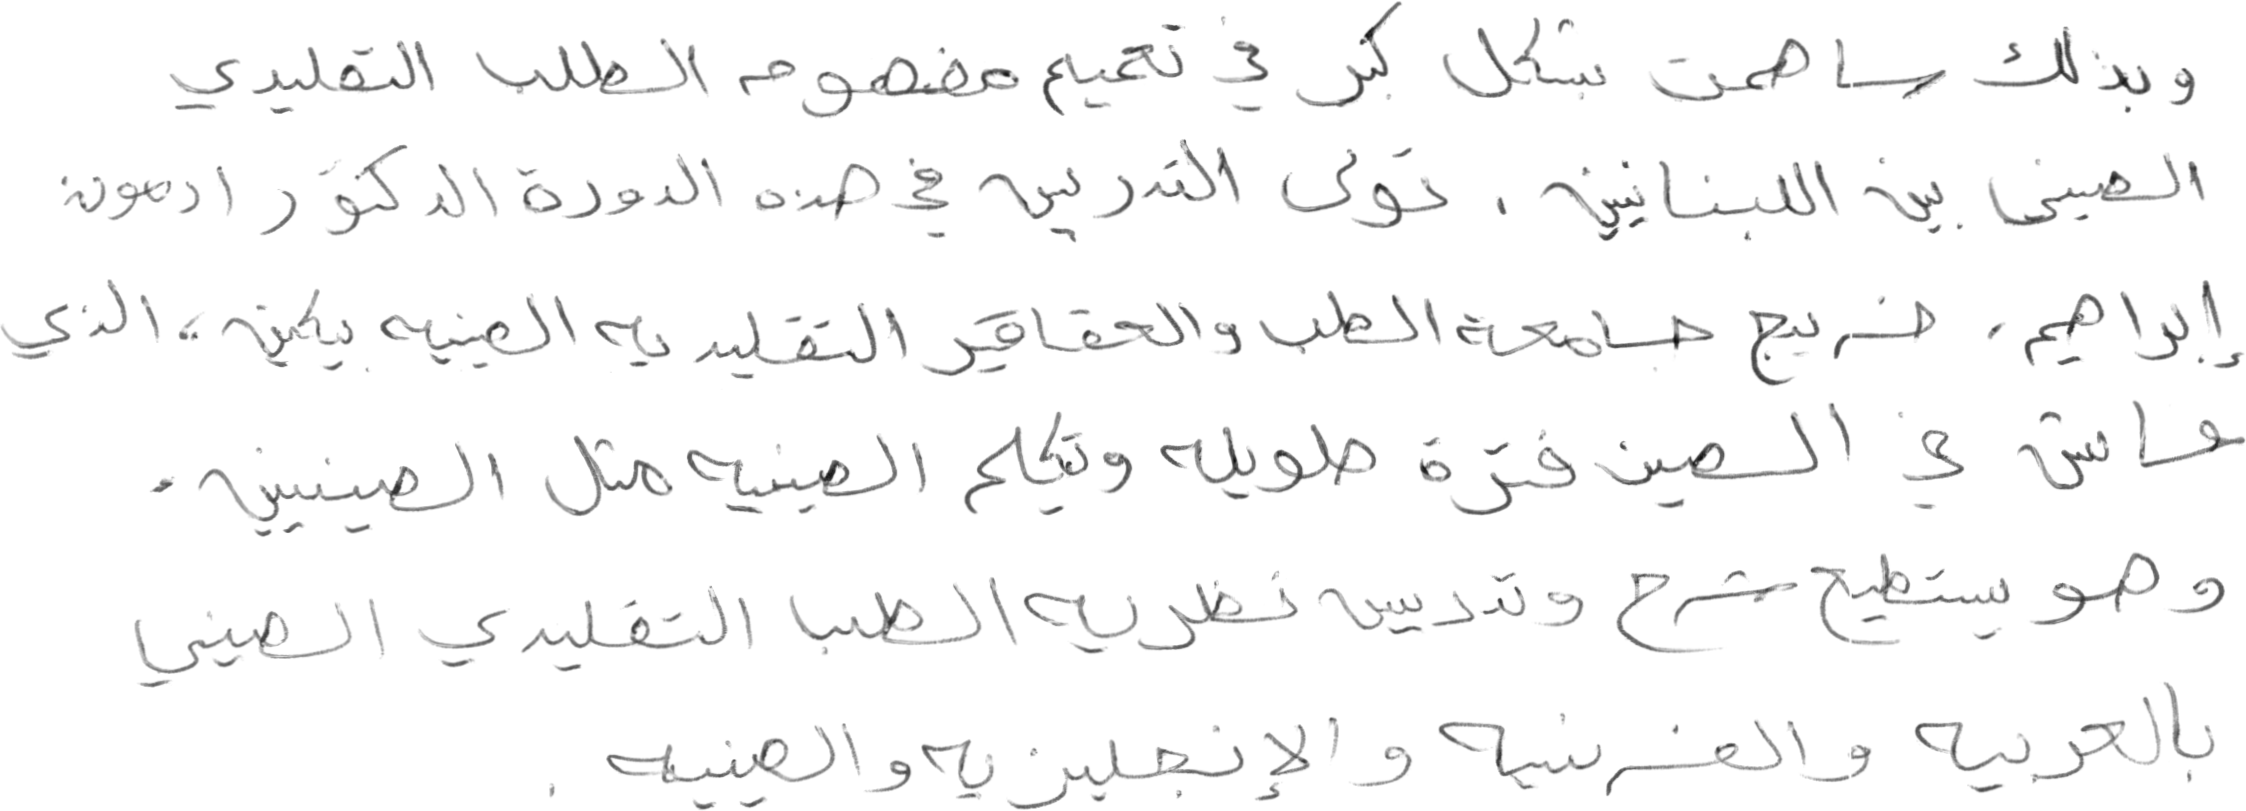 وبذلك ساهمت بشكل كبر في تعميم مفهوم الطلب التقليدي
الصيني بين اللبنانيين. تولى التدريس في هذه الدورة الدكتور ادمون
إبراهيم، خريج جامعة الطب والعقاقير التقليديه الصينيه ببكين، الذي
عاش في الصين فترة طويله وتكلم الصينيه مثل الصينيين.
وهو يستطيع شرح وتدريس نظريه الطب التقليدي الصيني
بالعربيه والفرنسيه والإنجليزيه والصينيه.